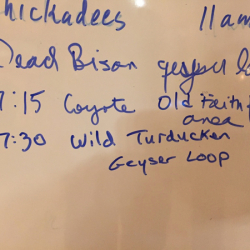 hickadees 11am
Dead Bison geyser
7:15 Coyote Old Faith
area
7:30 Wild Turducken
Geyser Loop